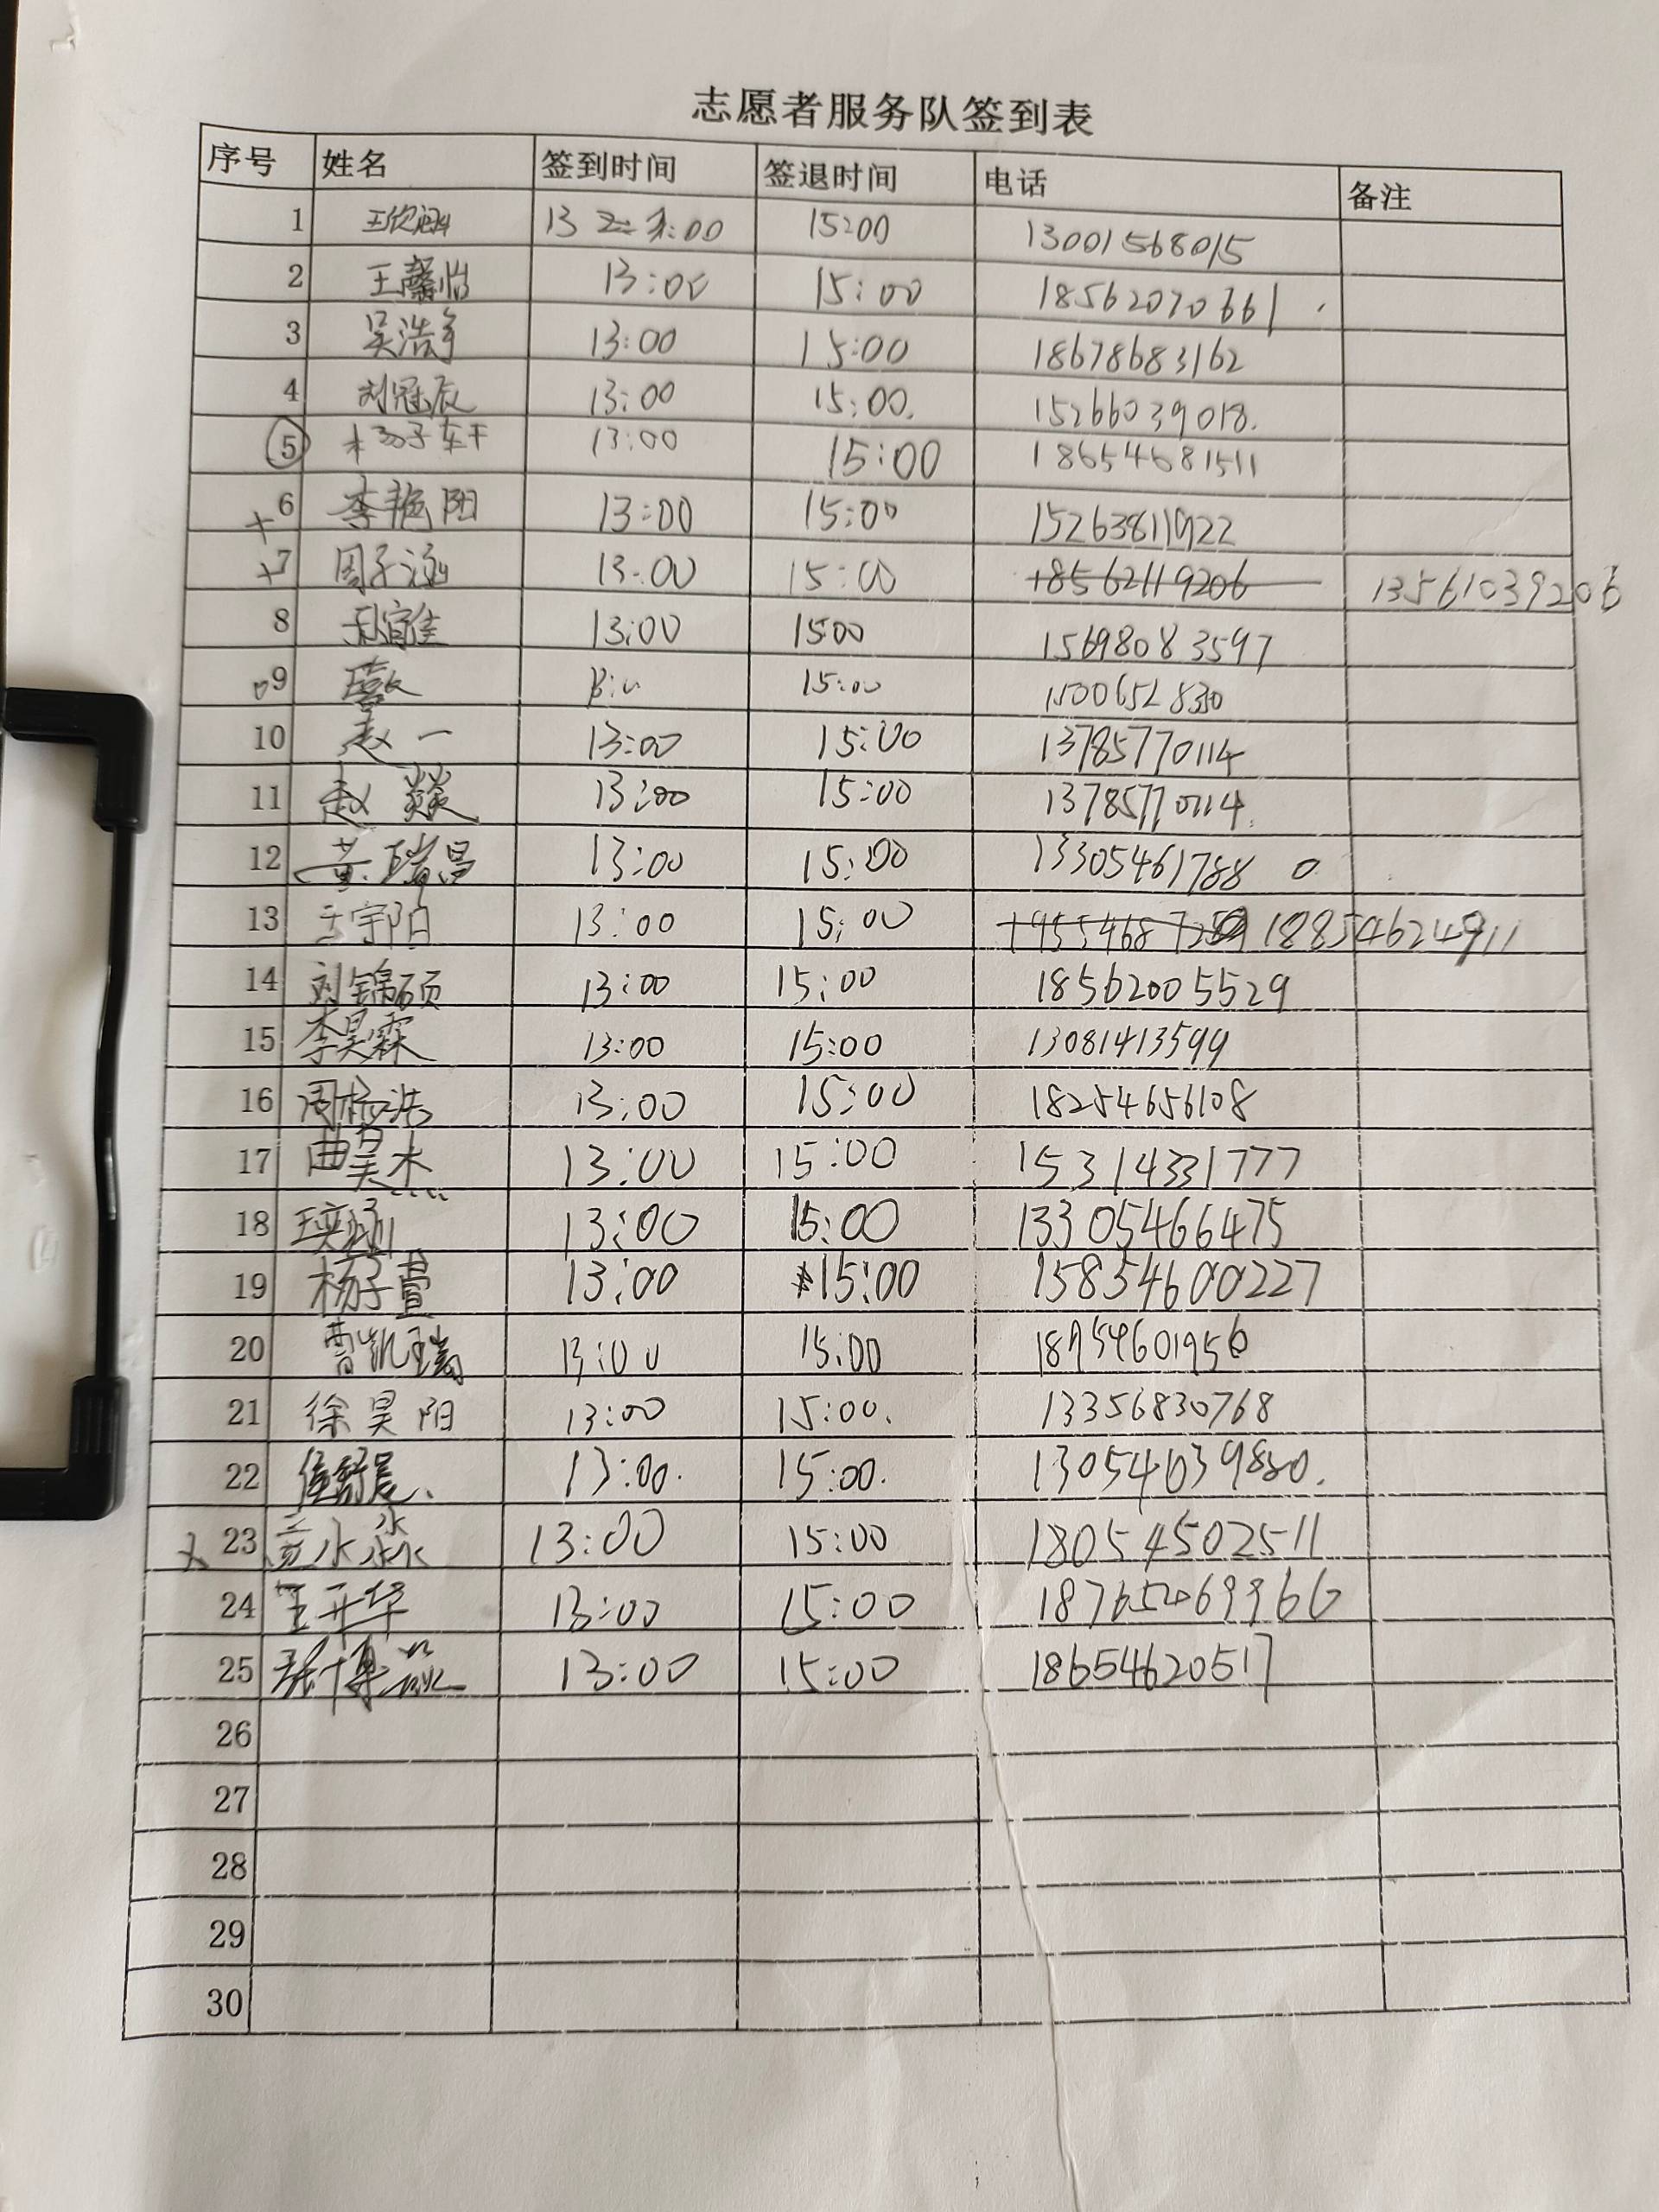 志愿者服务队签到表
序号 姓名 签到时间 签退时间 电话 备注
1 13:00 15:00 13001568015
2 王馨怡 13:00 15:00 18562070661
3 吴浩宇 13:00 15:00 18678683162
4 刘冠辰 13:00 15:00. 15266039018.
5 杨子轩 13:00 15:00 18654681511
6 李艳阳 13:00 15:00 15263811922
7 周子涵 13:00 15:00 18562119206 13561039206
8 13:00 15:00 15698083597
9 15:00 15006528330
10 赵一 13:00 15:00 13785770114
11 赵燚 13:00 15:00 13785770114.
12 黄瑞昌 13:00 15:00 13305461788 0
13 王宇阳 13:00 15:00 18854624911
14 刘锦硕 13:00 15:00 18562005529
15 李昊霖 13:00 15:00 13081413599
16 周杨浩 13:00 15:00 18254656108
17 曲昊杰 13:00 15:00 15314331777
18 13:00 15:00 13305466475
19 杨子萱 13:00 15:00 15854600227
20 曹凯瑞 13:00 15:00 18954601956
21 徐昊阳 13:00 15:00. 13356830768
22 13:00. 15:00. 13054639880.
23 13:00 15:00 18054502511
24 王开华 13:00 15:00 18765069966
25 张博焱 13:00 15:00 18654620517
26
27
28
29
30